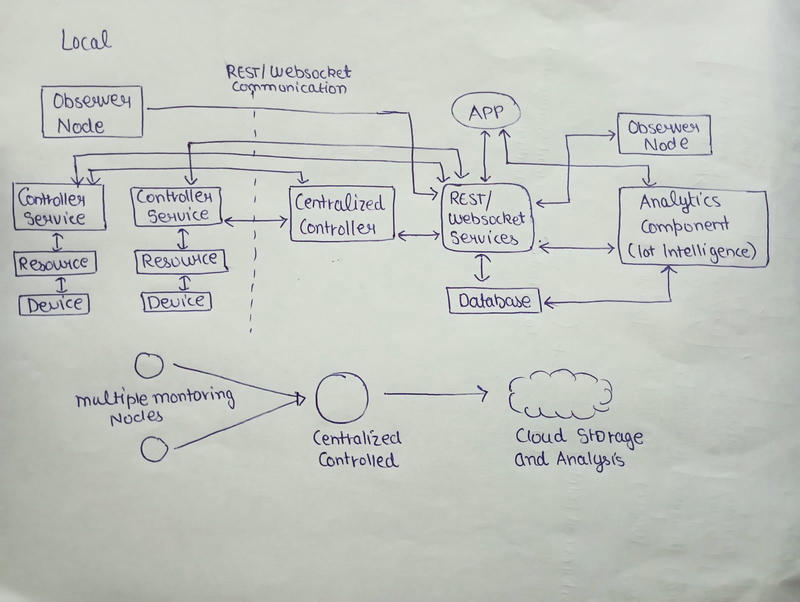 Local
REST/Websocket
Communication
Observer
Node
APP
Observer
Node
Controller
Service
Controller
Service
Centralized
Controller
REST/
Websocket
Services
Analytics
Component
(Iot Intelligence)
Resource
Resource
Device
Device
Database
multiple montoring
Nodes
Centralized
Controlled
Cloud Storage
and Analysis